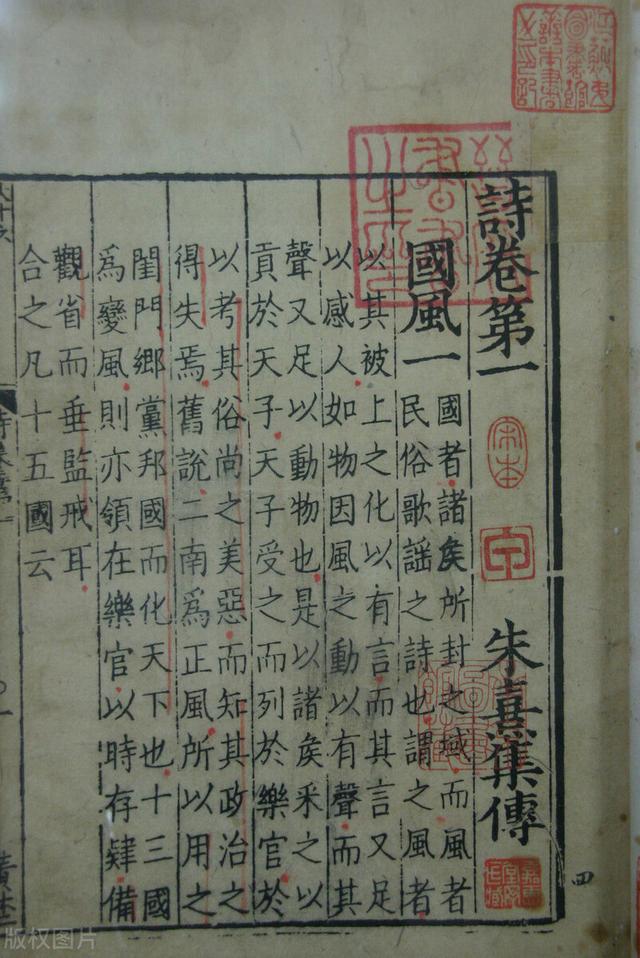 詩卷第一 朱熹集傳
國風一
國者諸矦所封之域而風者
民俗歌謡之詩也謂之風者
以其被上之化以有言而其言又足
以感人如物因風之動以有聲而其
聲又足以動物也是以諸矦采之以
貢於天子天子受之而列於樂官於
以考其俗尚之美惡而知其政治之
得失焉舊說二南爲正風所以用之
閨門鄉黨邦國而化天下也十三國
爲變風則亦領在樂官以時存肄備
觀省而垂監戒耳
合之凡十五國云
宋本
四
版权图片